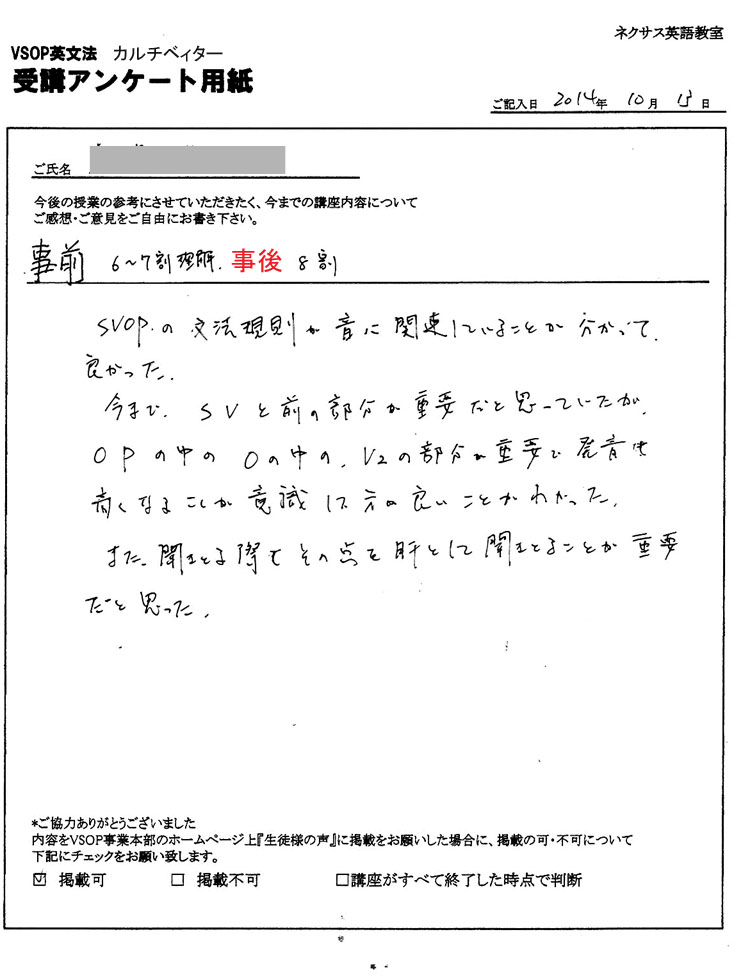 ネクサス英語教室
VSOP英文法 カルチベィター
受講アンケート用紙
ご記入日 2014年 10月 13日
ご氏名
今後の授業の参考にさせていただきたく、今までの講座内容について
ご感想・ご意見をご自由にお書き下さい。
事前 6〜7割理解. 事後 8割
SVOP.の文法規則が音に関連していることが分かって.
良かった.
今まで. SVと前の部分が重要だと思っていたが.
OPの中のOの中の. V2の部分が重要で発音も
高くなることが意識した方が良いことがわかった.
また. 聞きとる際もその点を肝として聞きとることが重要
だと思った.
*ご協力ありがとうございました
内容をVSOP事業本部のホームページ上『生徒様の声』に掲載をお願いした場合に、掲載の可・不可について
下記にチェックをお願い致します。
☑ 掲載可 □ 掲載不可 □講座がすべて終了した時点で判断